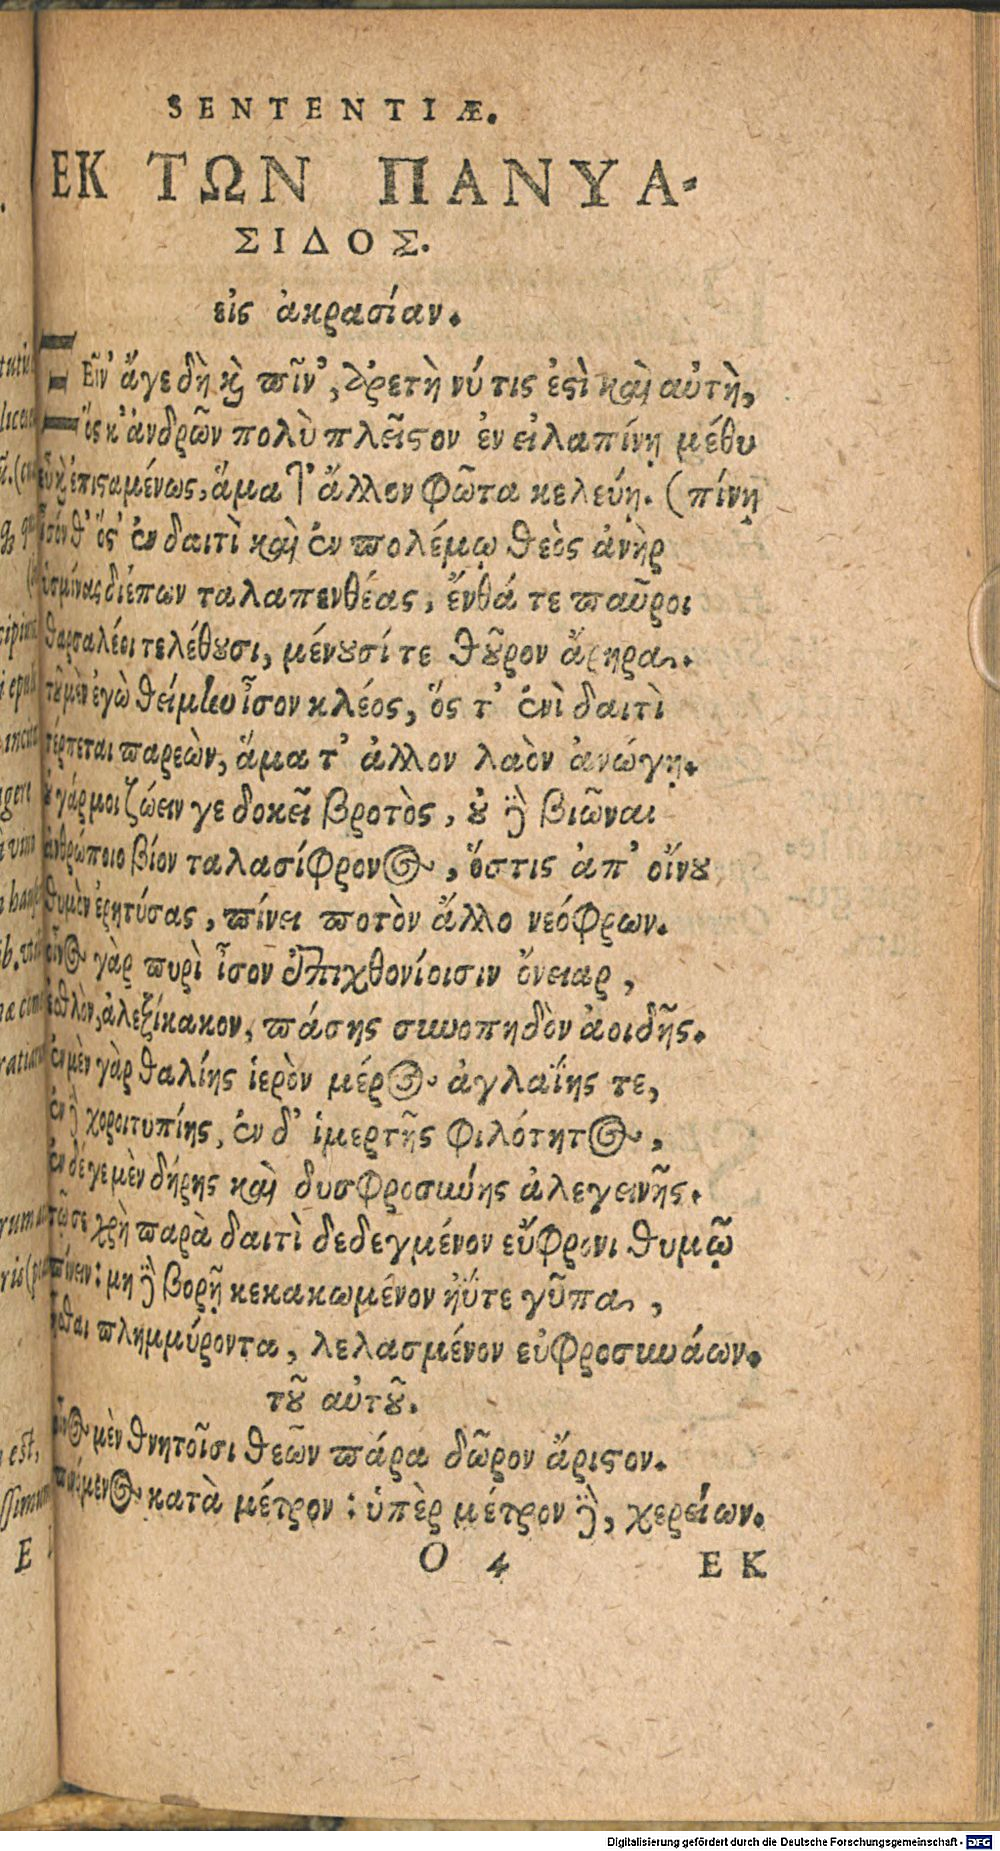 SENTENTIÆ.
ΕΚ ΤΩΝ ΠΑΝΥΑ-
ΣΙΔΟΣ.
εἰς ἀκρασίαν.
ΞΕῖν' ἄγε δὴ καὶ πῖν', ἀρετὴ νύ τις ἐστὶ καὶ αὐτὴ,
ὅς κ' ἀνδρῶν πολὺ πλεῖστον ἐν εἰλαπίνῃ μέθυ
εὖ καὶ ἐπισταμένως, ἅμα τ' ἄλλον φῶτα κελεύῃ. (πίνῃ
ἶσόν θ' ὅς τ' ἐν δαιτὶ καὶ ἐν πολέμῳ θεὸς ἀνὴρ
ὑσμίνας διέπων ταλαπενθέας, ἔνθά τε παῦροι
θαρσαλέοι τελέθουσι, μένουσί τε θοῦρον ἄρηρα.
τοῦ μὲν ἐγὼ θείμην ἶσον κλέος, ὅς τ' ἐνὶ δαιτὶ
τέρπεται παρεὼν, ἅμα τ' ἄλλον λαὸν ἀνώγῃ.
οὐ γάρ μοι ζώειν γε δοκεῖ βροτὸς, οὐ δὲ βιῶναι
ἀνθρώποιο βίον ταλασίφρονος, ὅστις ἀπ' οἴνου
θυμὸν ἐρητύσας, πίνει ποτὸν ἄλλο νεόφρων.
οἶνος γὰρ πυρὶ ἶσον ἐπιχθονίοισιν ὄνειαρ,
ἐσθλὸν, ἀλεξίκακον, πάσης συνοπηδὸν ἀοιδῆς.
ἐν μὲν γὰρ θαλίης ἱερὸν μέρος ἀγλαΐης τε,
ἐν δὲ χοροιτυπίης, ἐν δ' ἱμερτῆς φιλότητος,
ἐν δέ γε μὲν δήρης καὶ δυσφροσύνης ἀλεγεινῆς.
τῷ σε χρὴ παρὰ δαιτὶ δεδεγμένον εὔφρονι θυμῷ
πίνειν: μὴ δὲ βορῇ κεκακωμένον ἠΰτε γῦπα,
ἧσθαι πλημμύροντα, λελασμένον εὐφροσυνάων.
τοῦ αὐτοῦ.
οἶνος μὲν θνητοῖσι θεῶν πάρα δῶρον ἄριστον.
πινόμενος κατὰ μέτρον: ὑπὲρ μέτρον δὲ, χερείων.
O 4 ΕΚ
Digitalisierung gefördert durch die Deutsche Forschungsgemeinschaft - DFG